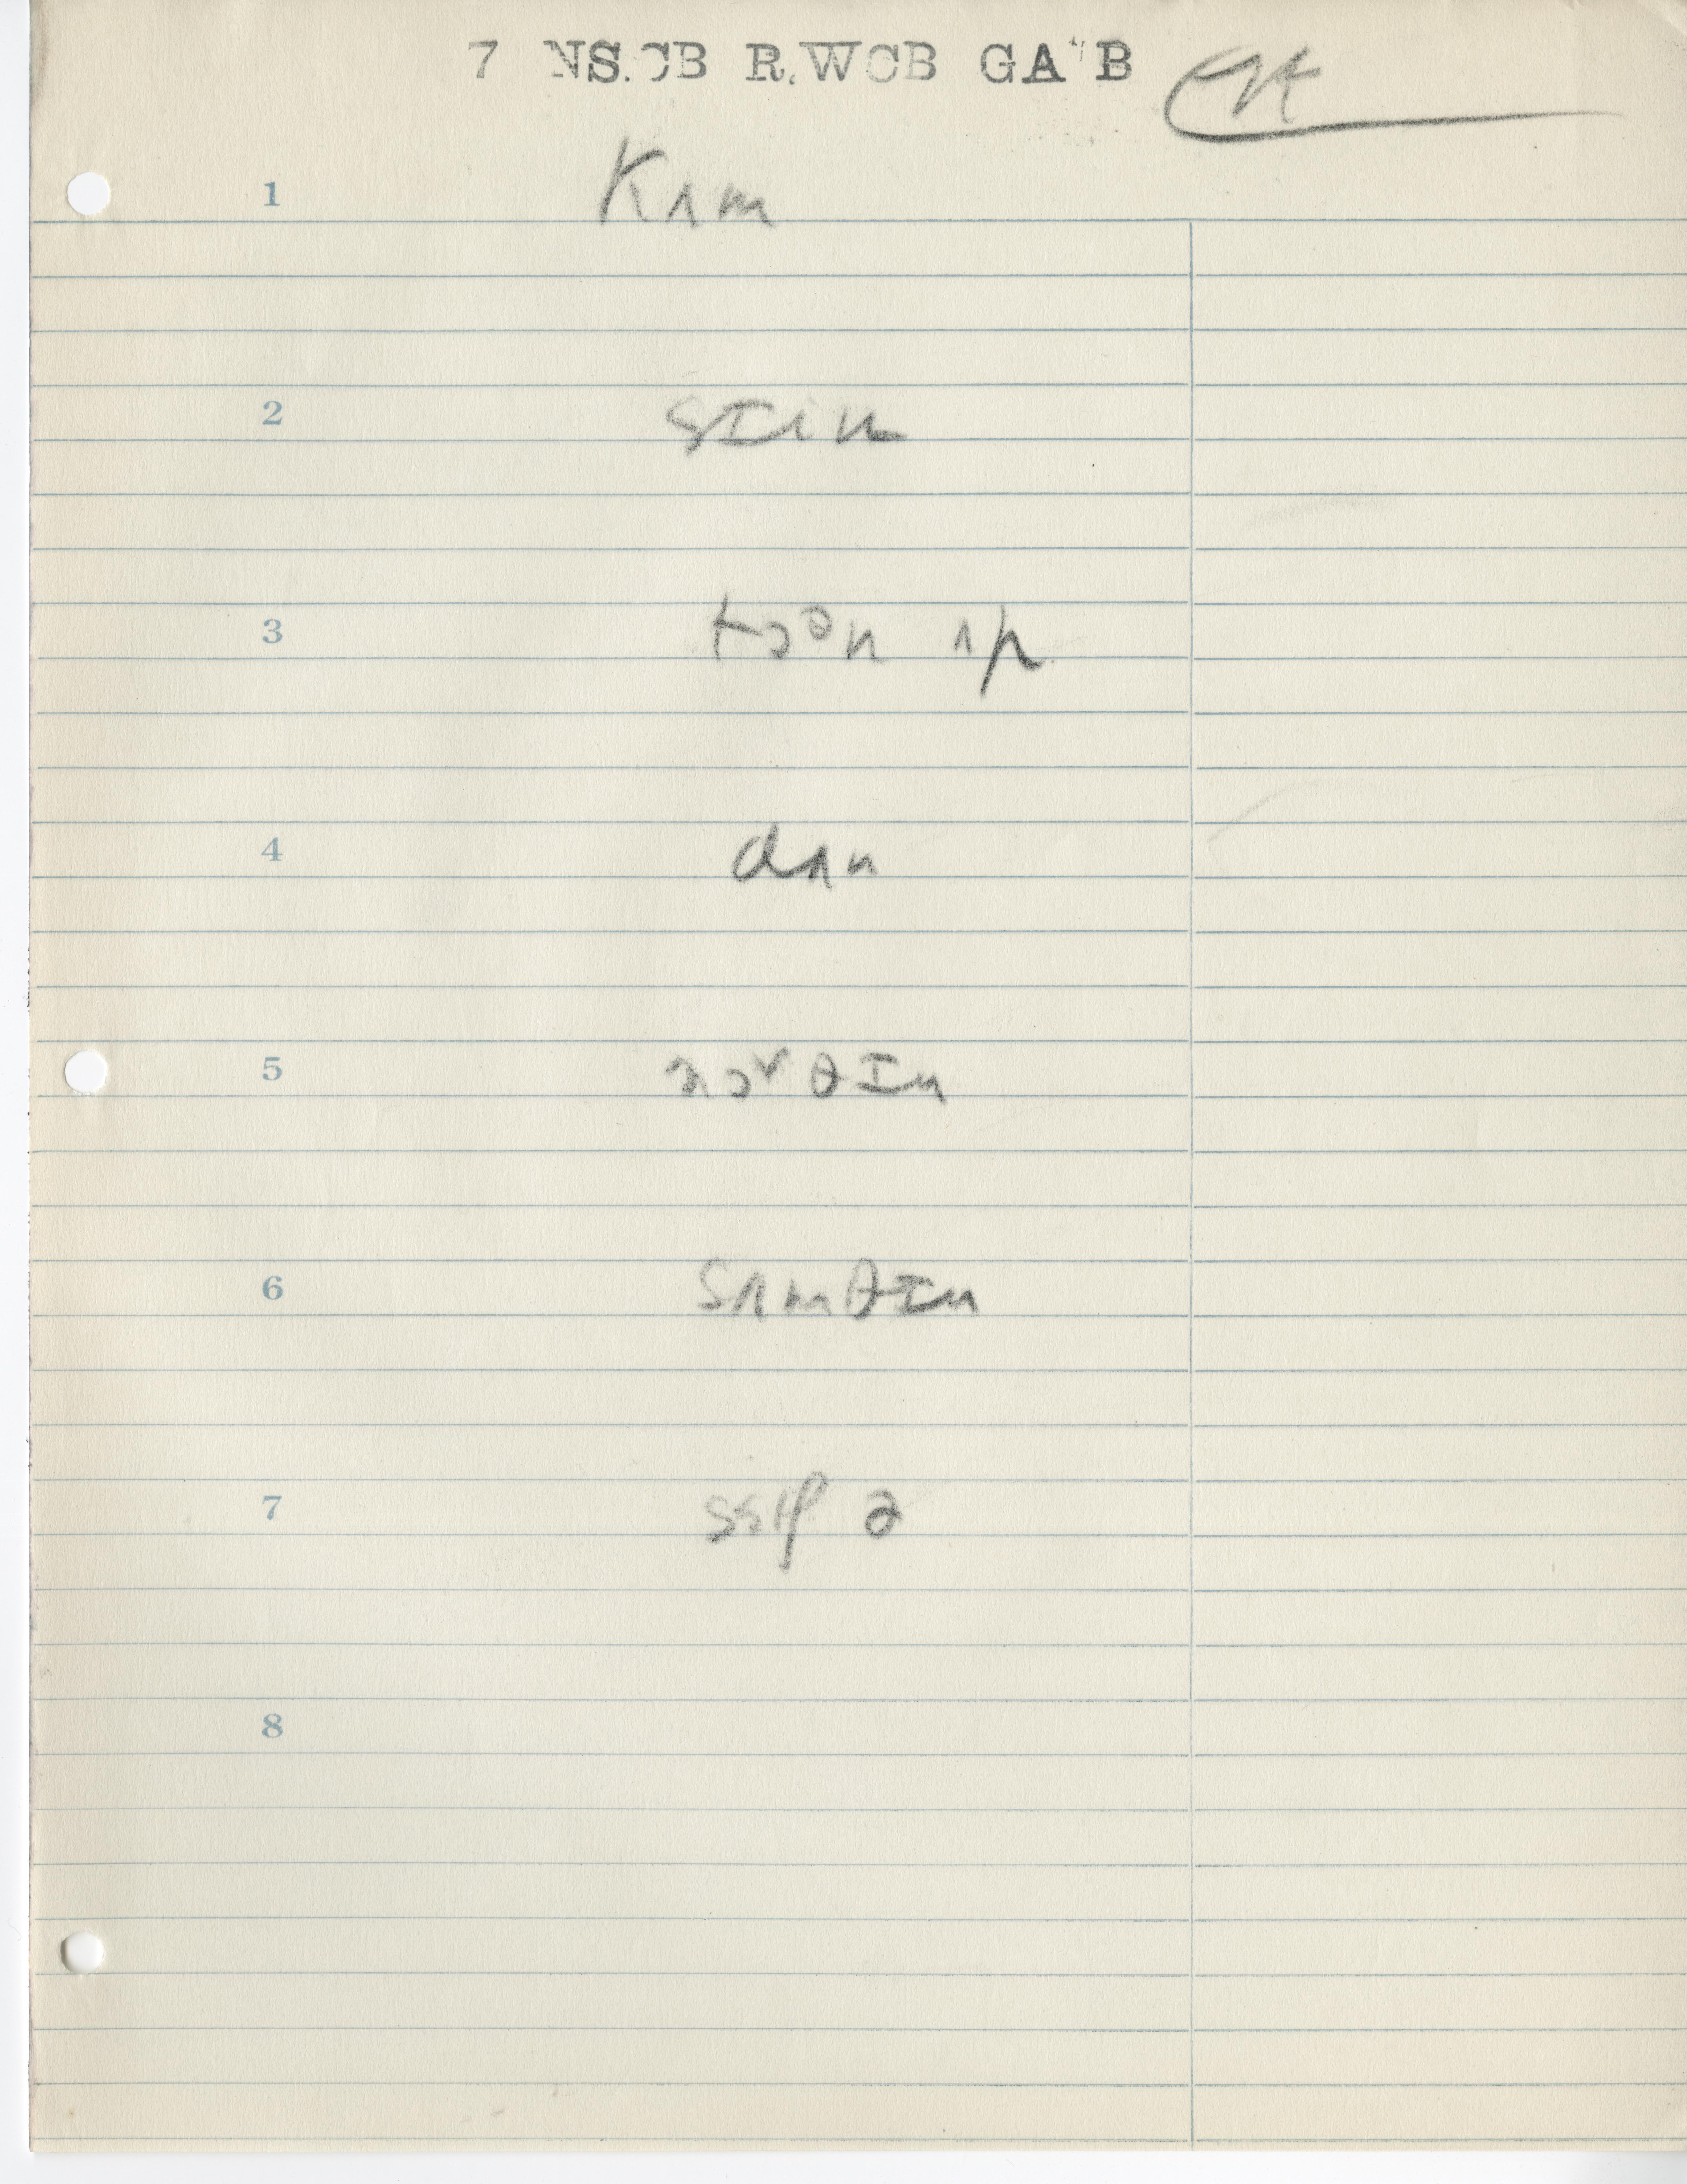 7 NS.CB R.WCB GA"B
1 kʌm
2 sɪin
3 tɔᵊn ʌp
4 dʌn
5 nɔʳθɪn
6 sʌmθɪn
7
8